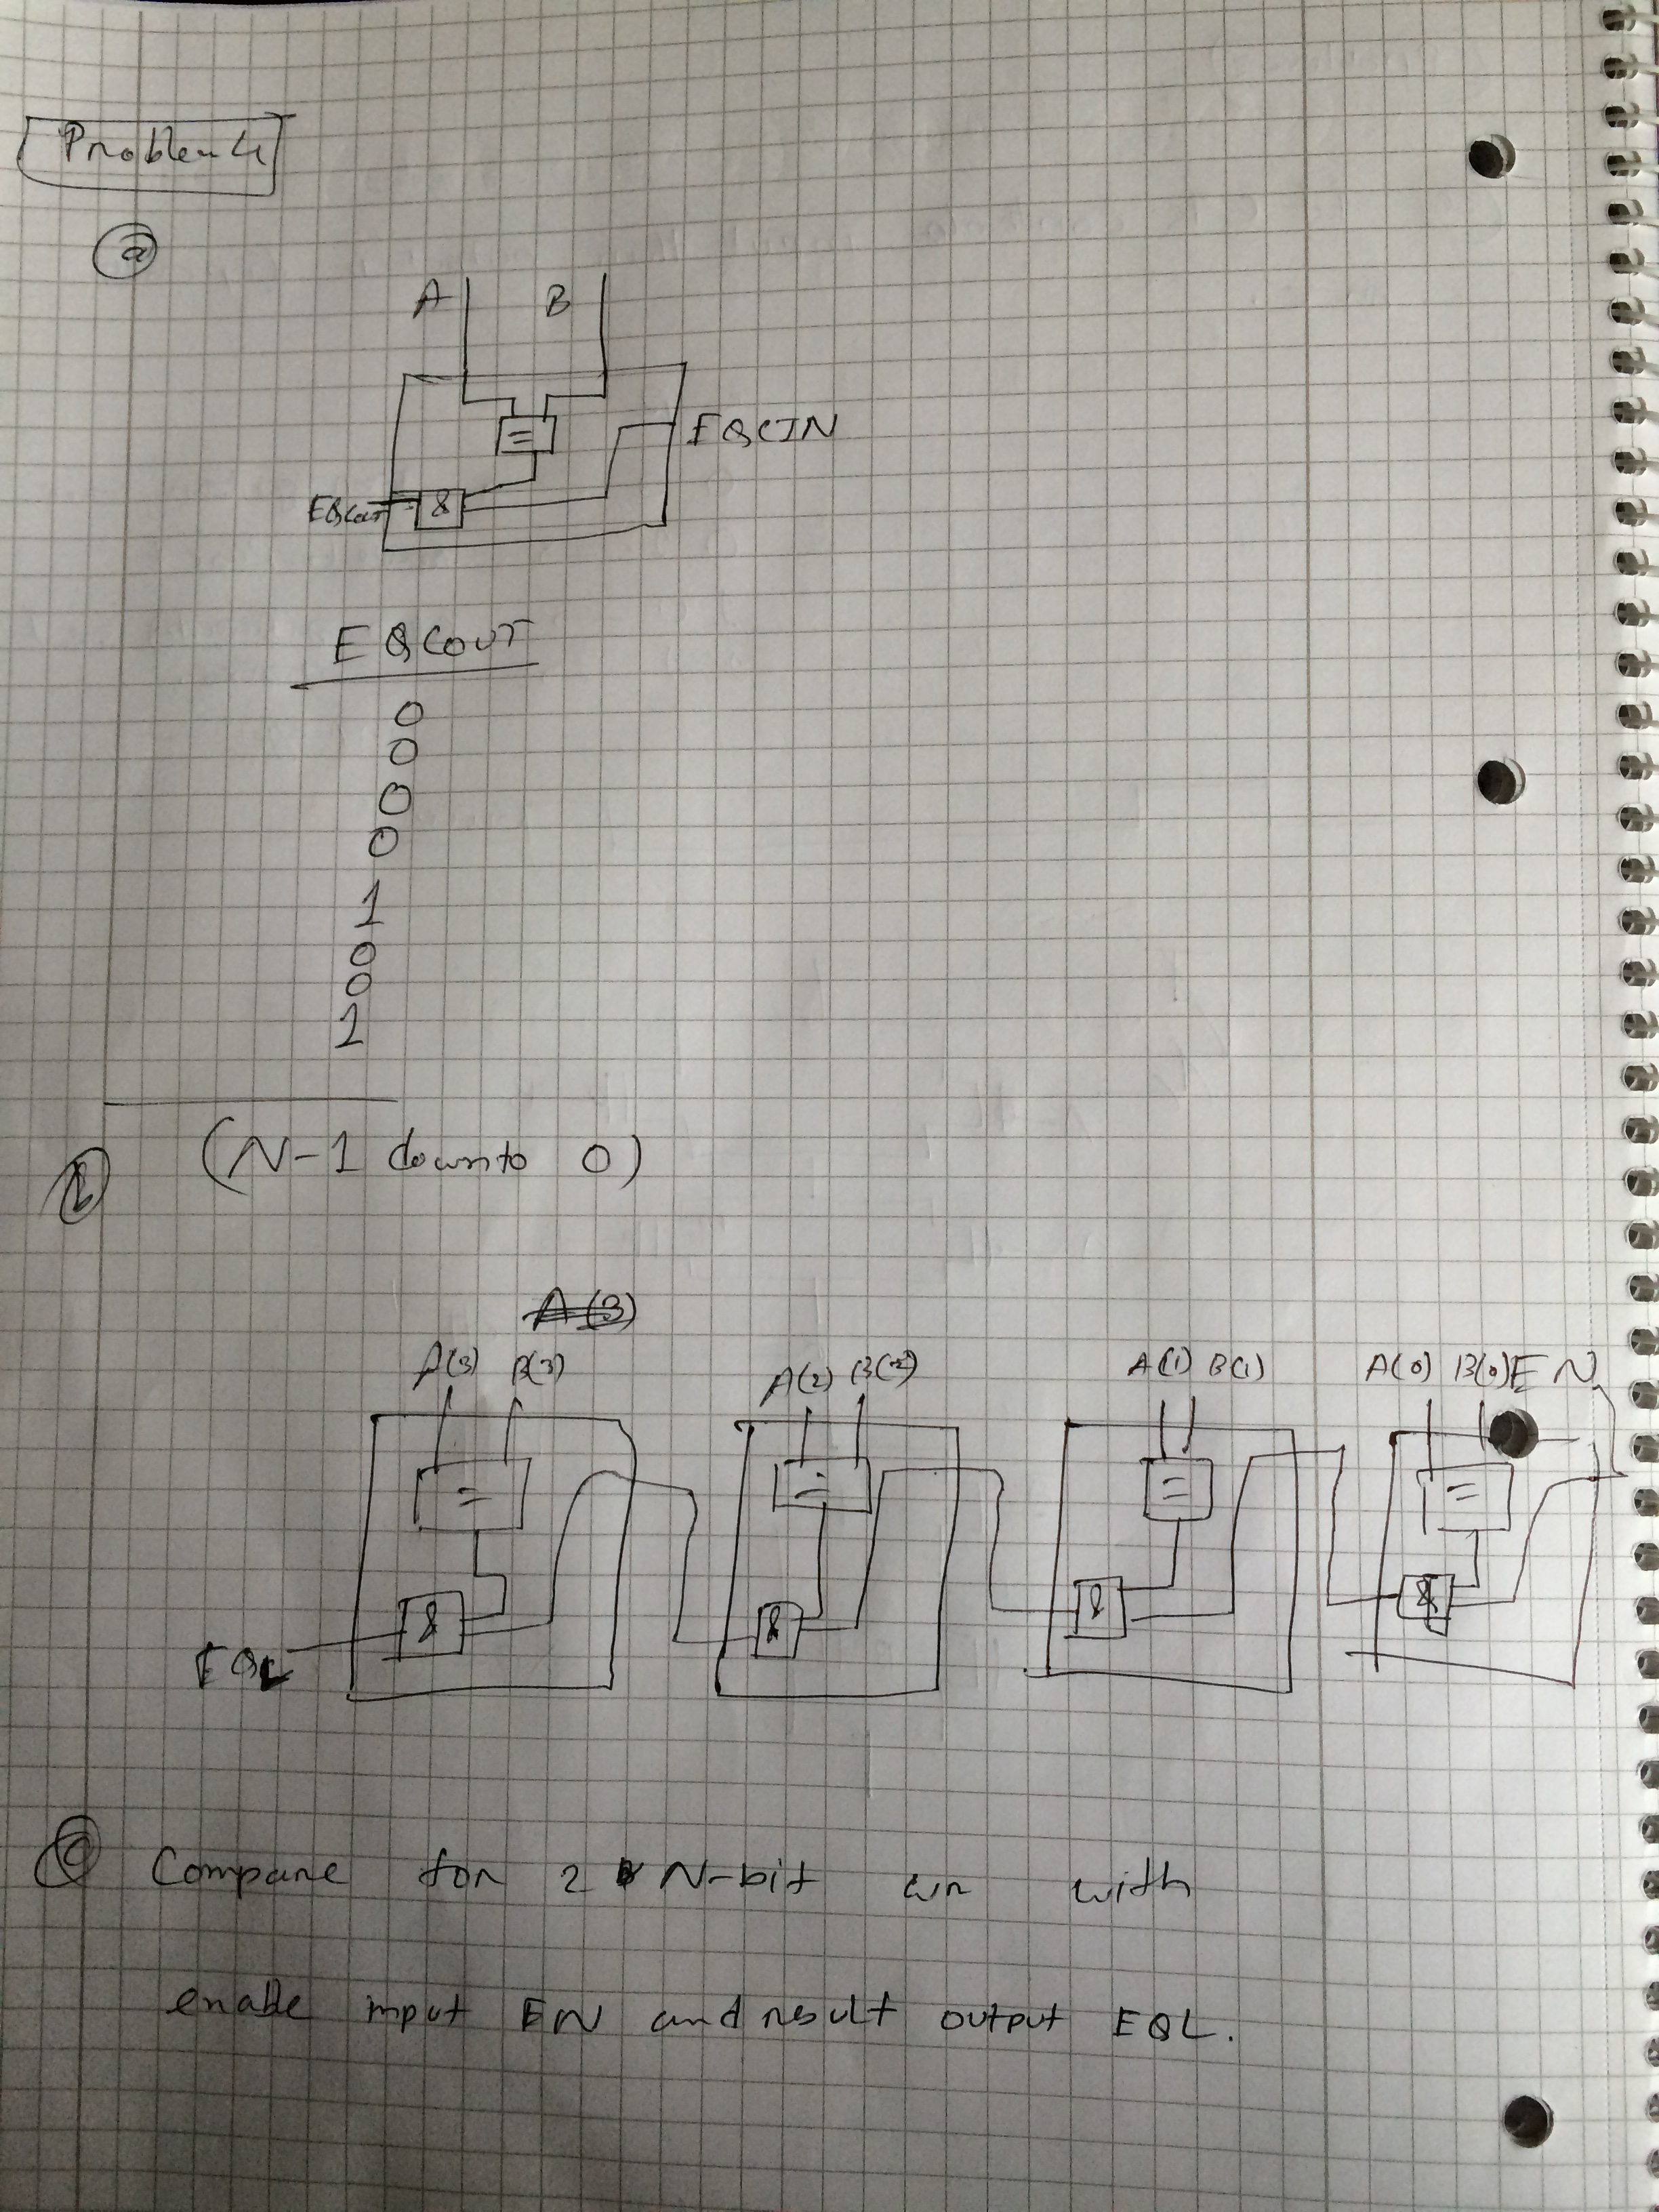 Problem 4
a
A B
=
EQCIN
EQCOUT &
EQCOUT
0
0
0
0
1
0
0
1
b (N-1 downto 0)
A(3)
A(3) B(3) A(2) B(2) A(1) B(1) A(0) B(0) EN
= = = =
& & & &
EQL
c Compare for 2 N-bit with
enable input EN and result output EQL.